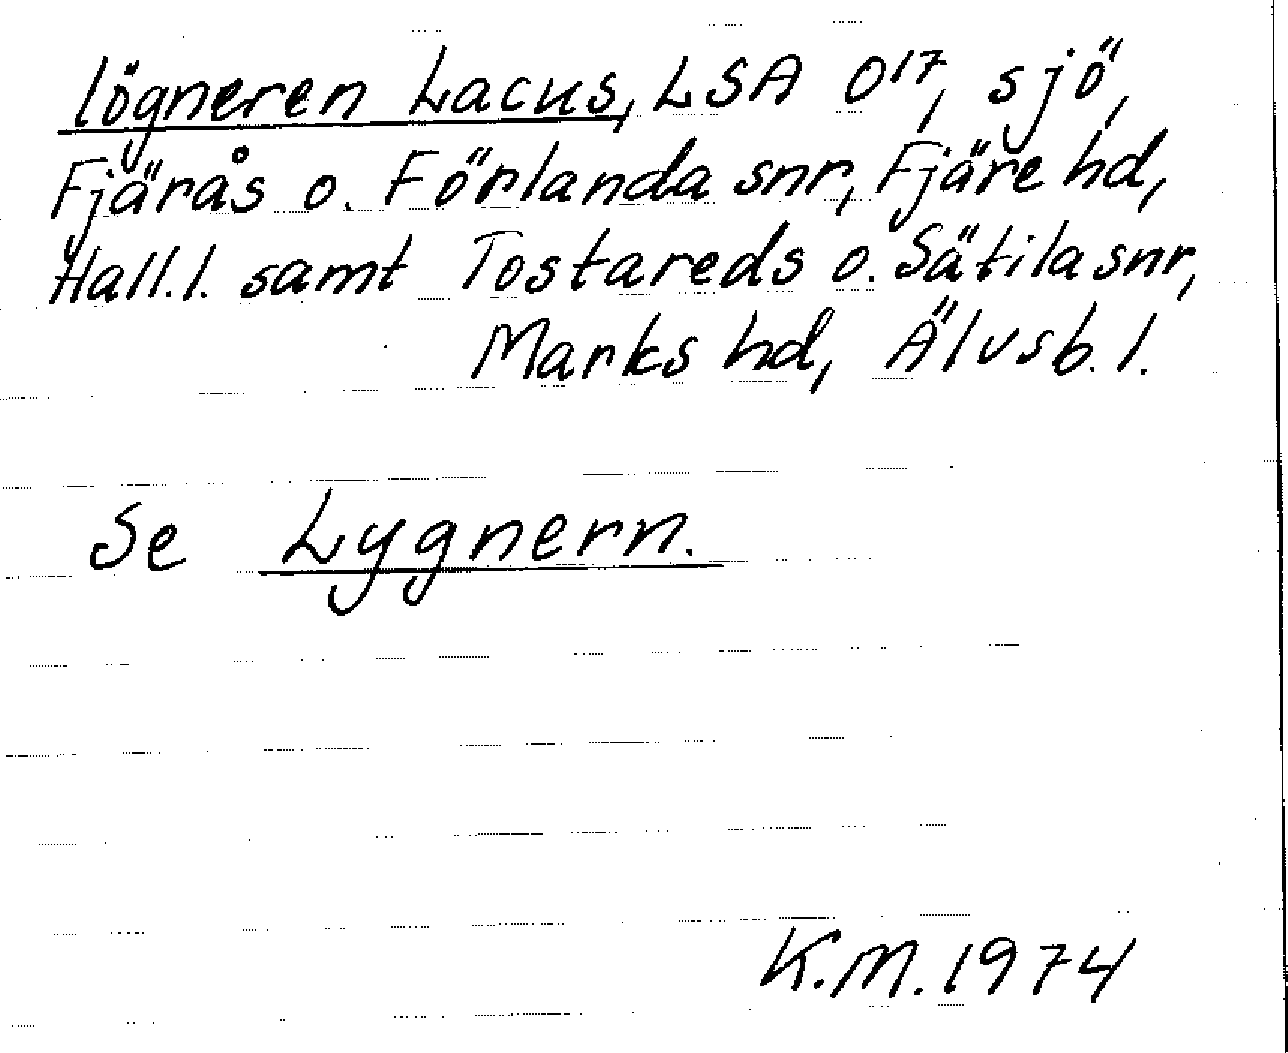 lögneren Lacus, LSA O17, sjö,
Fjärås o. Förlanda snr, Fjäre hd,
Hall.l. samt Tostareds o. Sätila snr,
Marks hd, Älvsb.l.
Se Lygnern.
K.M. 1974